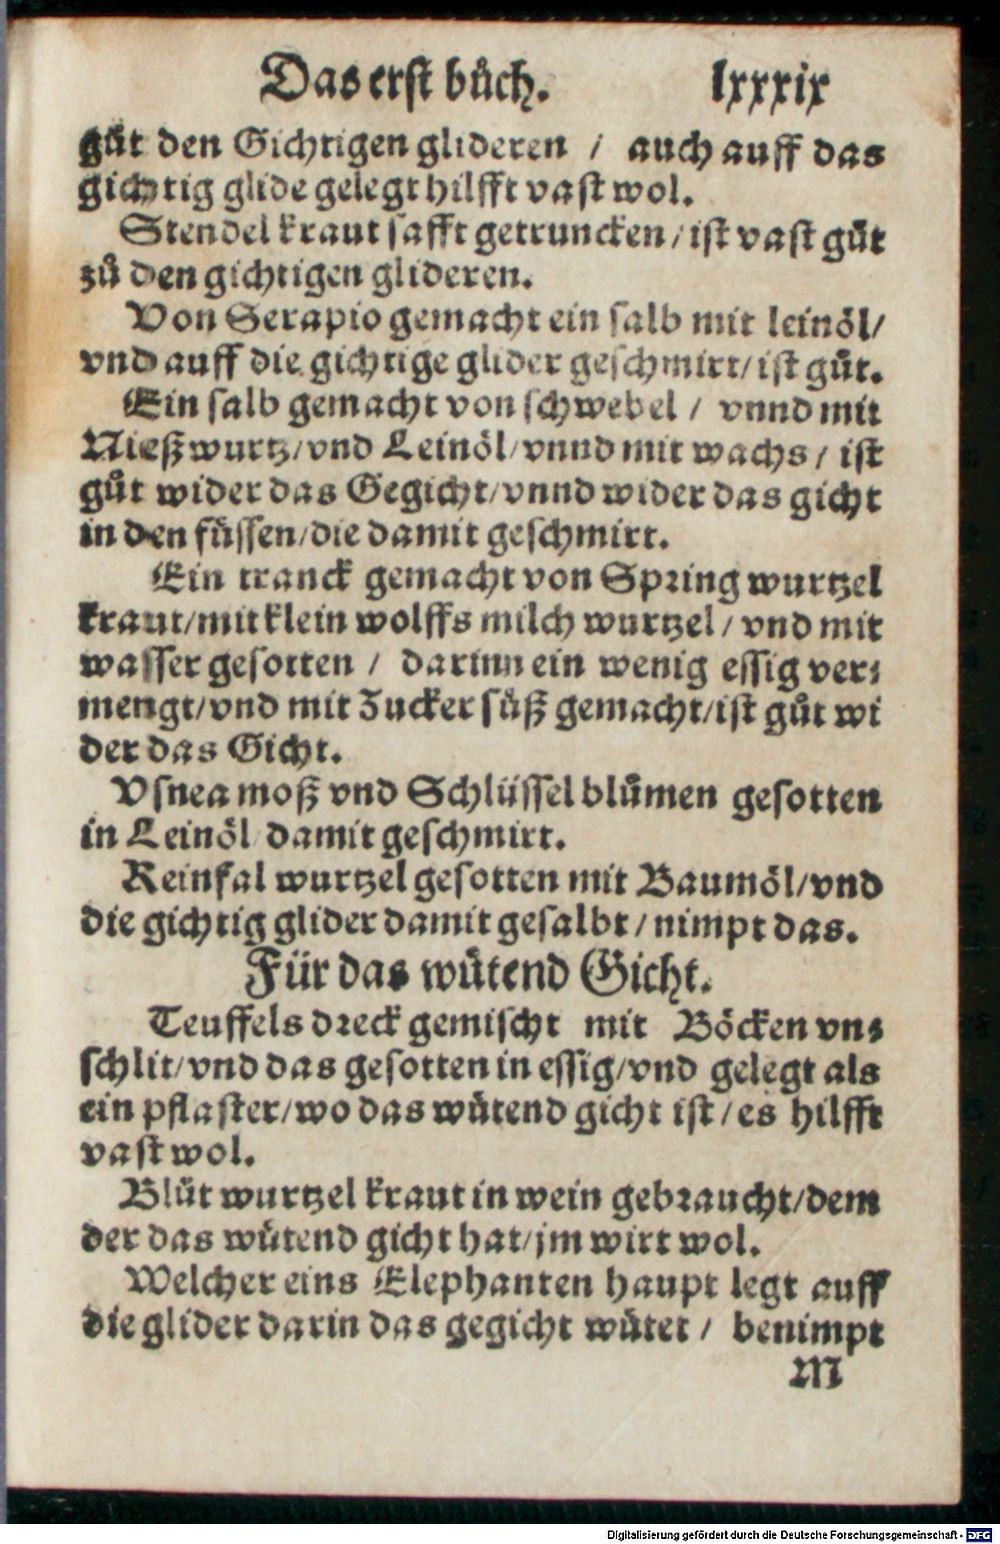 Das erst bůch. lxxxix
gůt den Gichtigen glideren / auch auff das
gichtig glide gelegt hilfft vast wol.
Stendel kraut safft getruncken / ist vast gůt
zů den gichtigen glideren.
Von Serapio gemacht ein salb mit leinöl /
vnd auff die gichtige glider geschmirt / ist gůt.
Ein salb gemacht von schwebel / vnnd mit
Nieß wurtz / vnd Leinöl / vnnd mit wachs / ist
gůt wider das Gegicht / vnnd wider das gicht
in den füssen / die damit geschmirt.
Ein tranck gemacht von Spring wurtzel
kraut / mit klein wolffs milch wurtzel / vnd mit
wasser gesotten / darinn ein wenig essig ver⸗
mengt / vnd mit Zucker süß gemacht / ist gůt wi
der das Gicht.
Vsnea moß vnd Schlüssel blůmen gesotten
in Leinöl damit geschmirt.
Reinfal wurtzel gesotten mit Baumöl / vnd
die gichtig glider damit gesalbt / nimpt das.
Für das wůtend Gicht.
Teuffels dreck gemischt mit Böcken vn⸗
schlit / vnd das gesotten in essig / vnd gelegt als
ein pflaster / wo das wůtend gicht ist / es hilfft
vast wol.
Blůt wurtzel kraut in wein gebraucht / dem
der das wůtend gicht hat / jm wirt wol.
Welcher eins Elephanten haupt legt auff
die glider darin das gegicht wůtet / benimpt
M
Digitalisierung gefördert durch die Deutsche Forschungsgemeinschaft - DFG